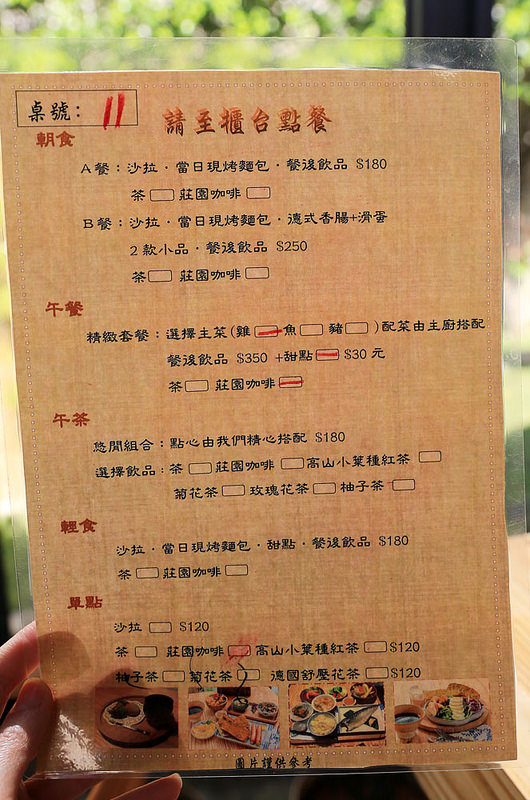 桌號: 11
請至櫃台點餐
朝食
A餐:沙拉.當日現烤麵包.餐後飲品 $180
茶 莊園咖啡
B餐:沙拉.當日現烤麵包.德式香腸+滑蛋
2款小品.餐後飲品 $250
茶 莊園咖啡
午餐
精緻套餐:選擇主菜(雞 魚 豬 )配菜由主廚搭配
餐後飲品 $350 +甜點 $30元
茶 莊園咖啡
午茶
悠閒組合:點心由我們精心搭配 $180
選擇飲品:茶 莊園咖啡 高山小葉種紅茶
菊花茶 玫瑰花茶 柚子茶
輕食
沙拉.當日現烤麵包.甜點.餐後飲品 $180
茶 莊園咖啡
單點
沙拉 $120
茶 莊園咖啡 高山小葉種紅茶 $120
柚子茶 菊花茶 德國舒壓花茶 $120
圖片謹供參考